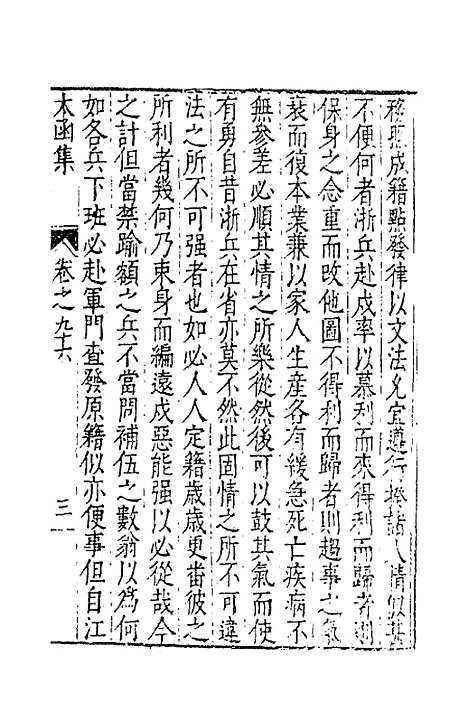 務照成籍點發律以文法允宜遵行揆諸人情似甚
不便何者浙兵赴戍率以慕利而來得利而歸者則
保身之念重而改他圖不得利而歸者則趨事之氣
衰而復本業兼以家人生產各有緩急死亡疾病不
無參差必順其情之所樂從然後可以鼓其氣而使
有勇自昔浙兵在省亦莫不然此固情之所不可違
法之所不可强者也如必人人定籍歲歲更畨彼之
所利者幾何乃束身而編遠戍惡能强以必從哉今
之計但當禁踰額之兵不當問補伍之數翁以為何
如各兵下班必赴軍門查發原籍似亦便事但自江
太函集
卷之九十六
三